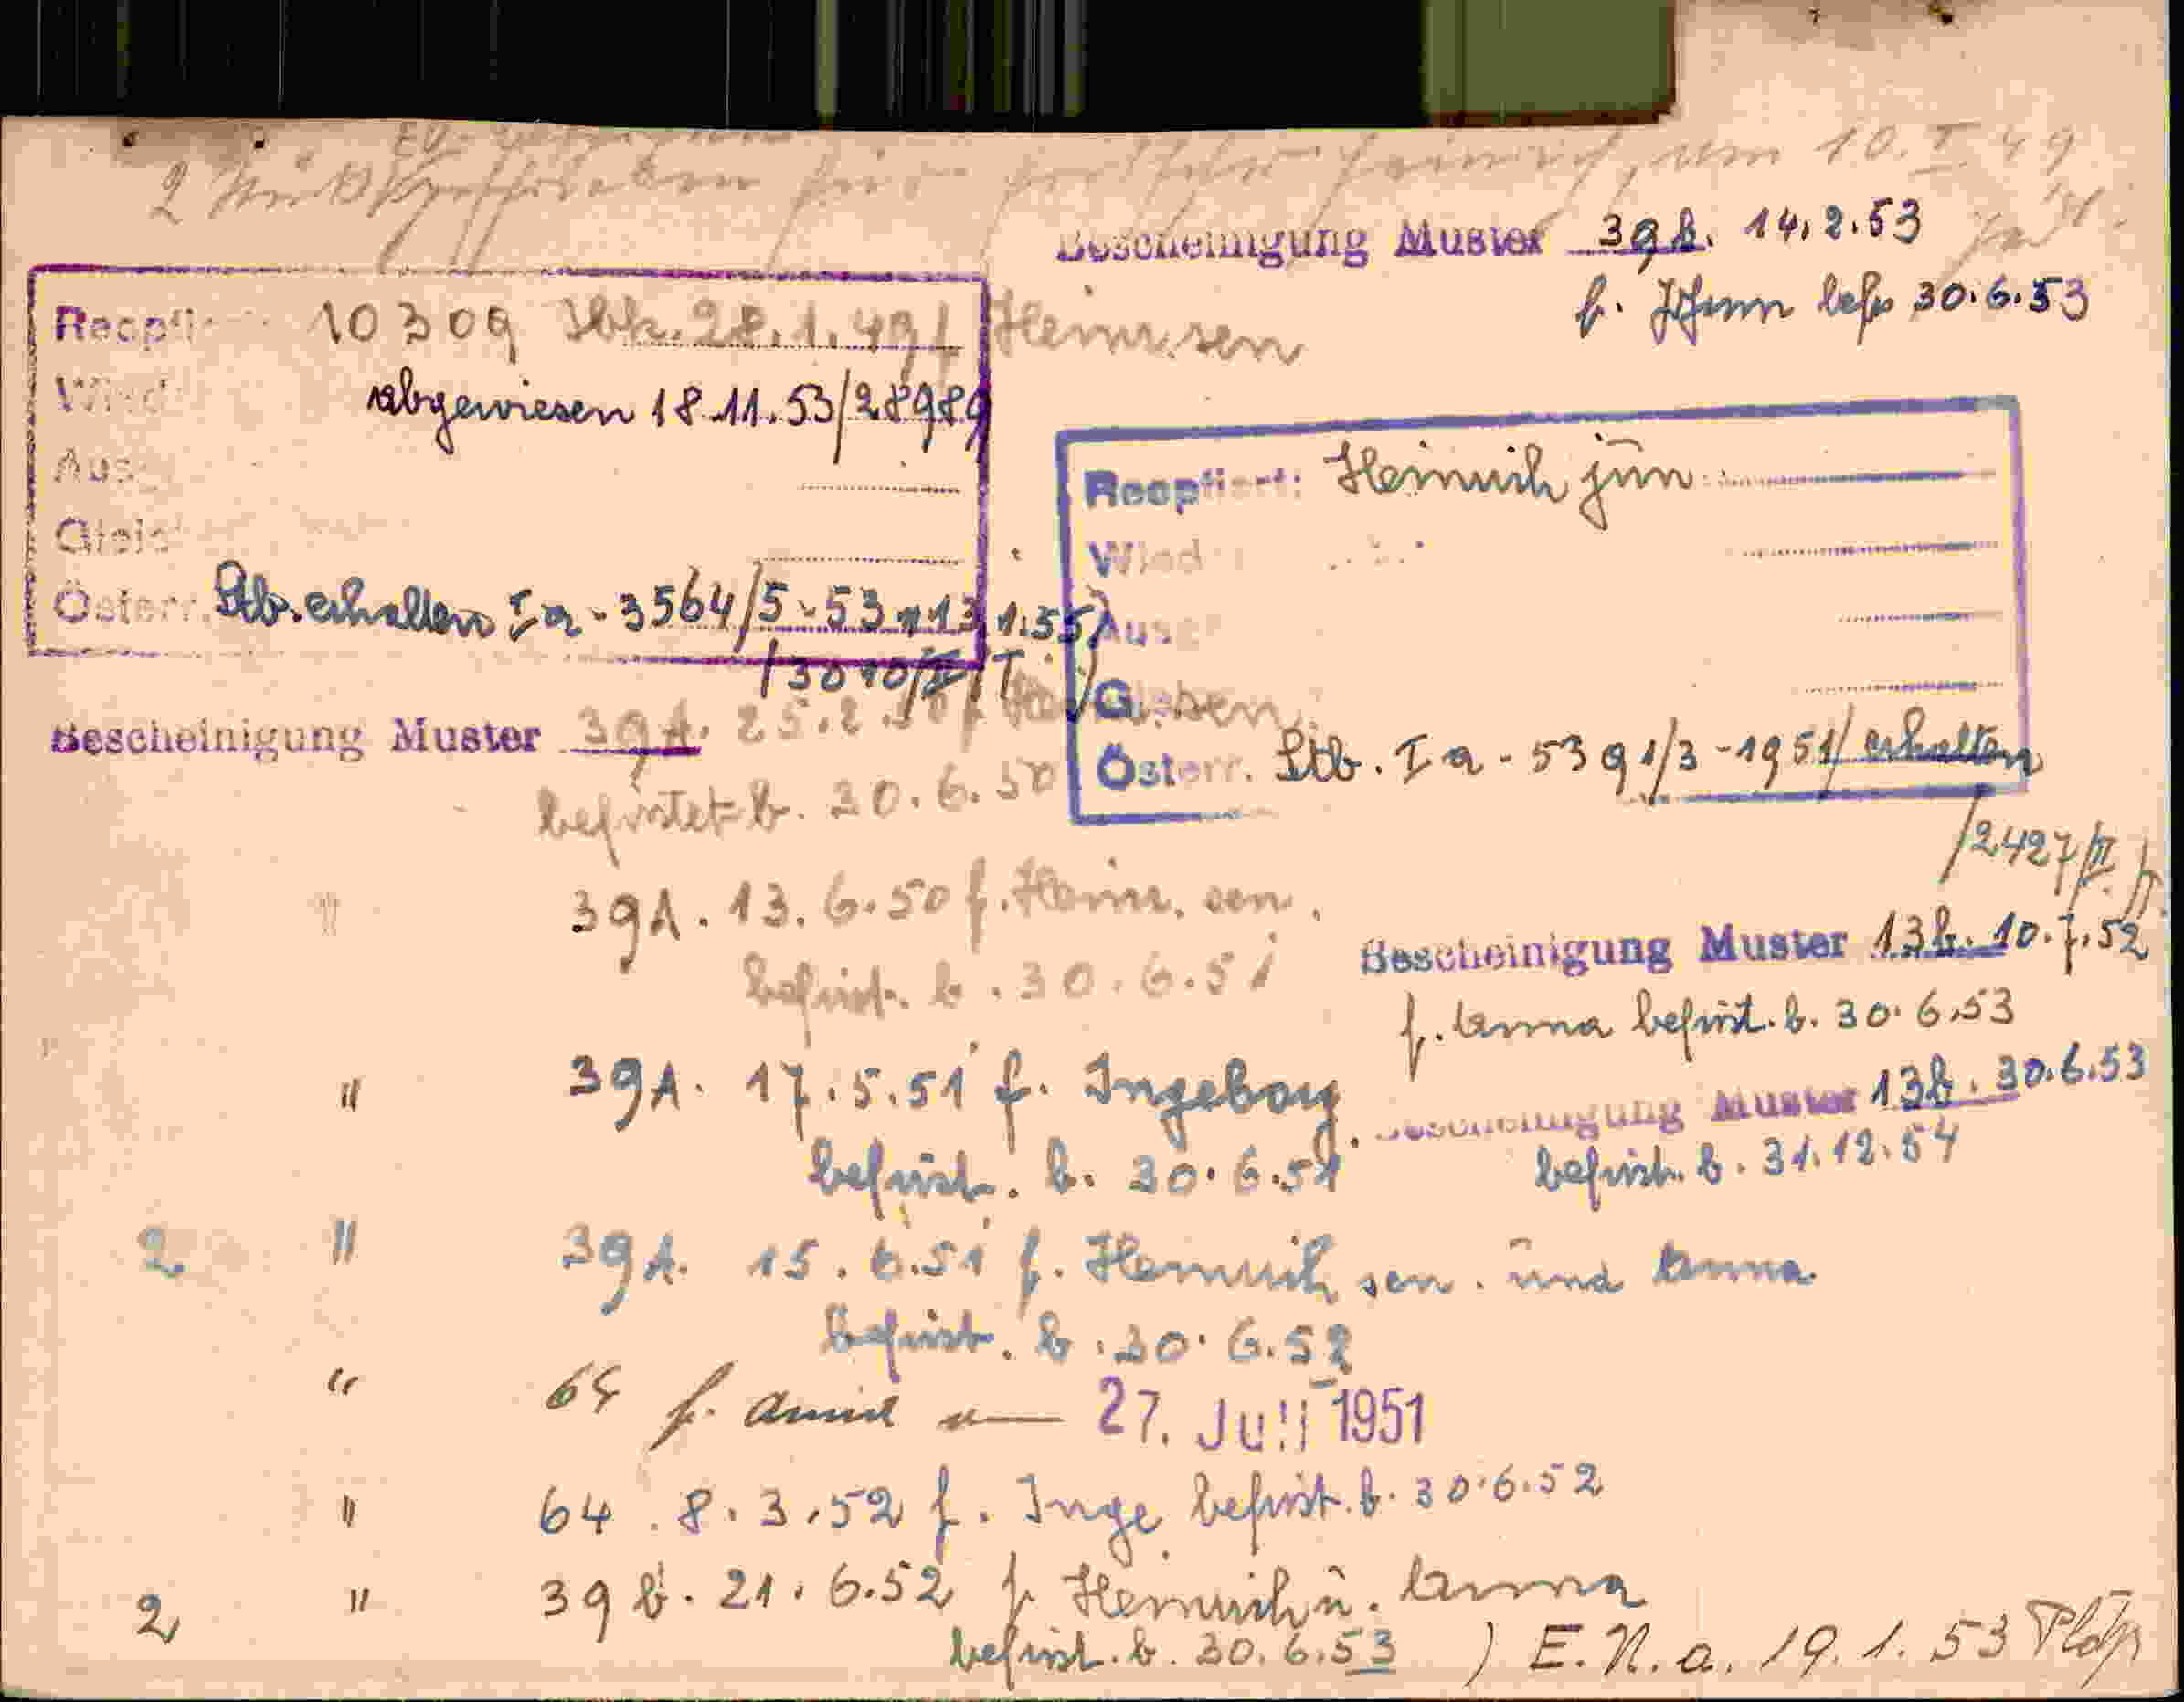 10. I. 49
Bescheinigung Muster 39b. 14.2.53
f. Johann befr 30.6.53
Recpt: 10309 Wh. 28.1.49 f Heinr. sen
Wied
abgewiesen 18.11.53/28989
Aus
Gleic
Österr. Stb. erhalten I a - 3564/5-53 13 1.55/
Recpt: Heinrich jun
Wied
Aus
G
Österr. Stb. I a - 5391/3-1951/ erhalten
/2427/II
Bescheinigung Muster 39A. 25.2.50 f.
befristet b. 30.6.50
" 39A. 13. 6.50 f. Heinr. sen.
befrist. b. 30.6.51
Bescheinigung Muster 13b. 10.7.52
f. Anna befrist. b. 30.6.53
" 39A. 17.5.51 f. Ingeborg.
befrist. b. 30.6.51
Bescheinigung Muster 13b. 30.6.53
befrist. b. 31.12.54
2 " 39A. 15.6.51 f. Heinrich sen. und Anna
befrist. b. 30.6.52
" 64 f. 27. Juli 1951
" 64. 8.3.52 f. Inge befrist. b. 30.6.52
2 " 39b. 21.6.52 f Heinrich u. Anna
befrist. b. 30.6.53 ) E.N.a. 19.1.53